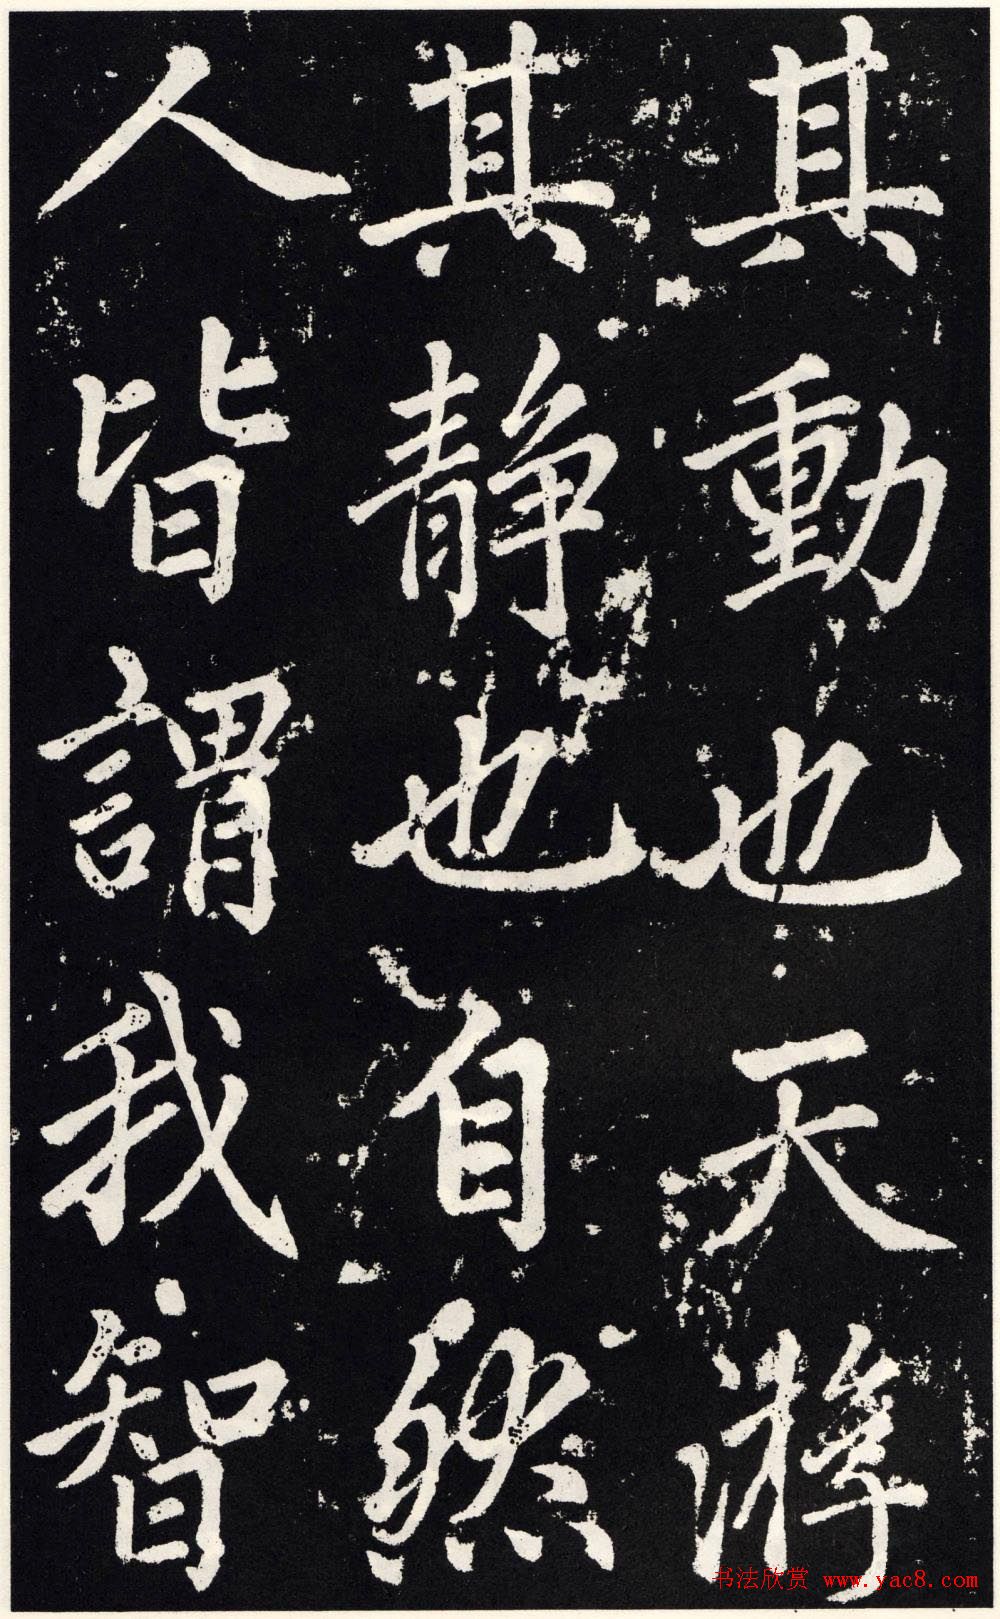 其動也天游
其静也自然
人皆謂我智
书法欣赏 www.yac8.com